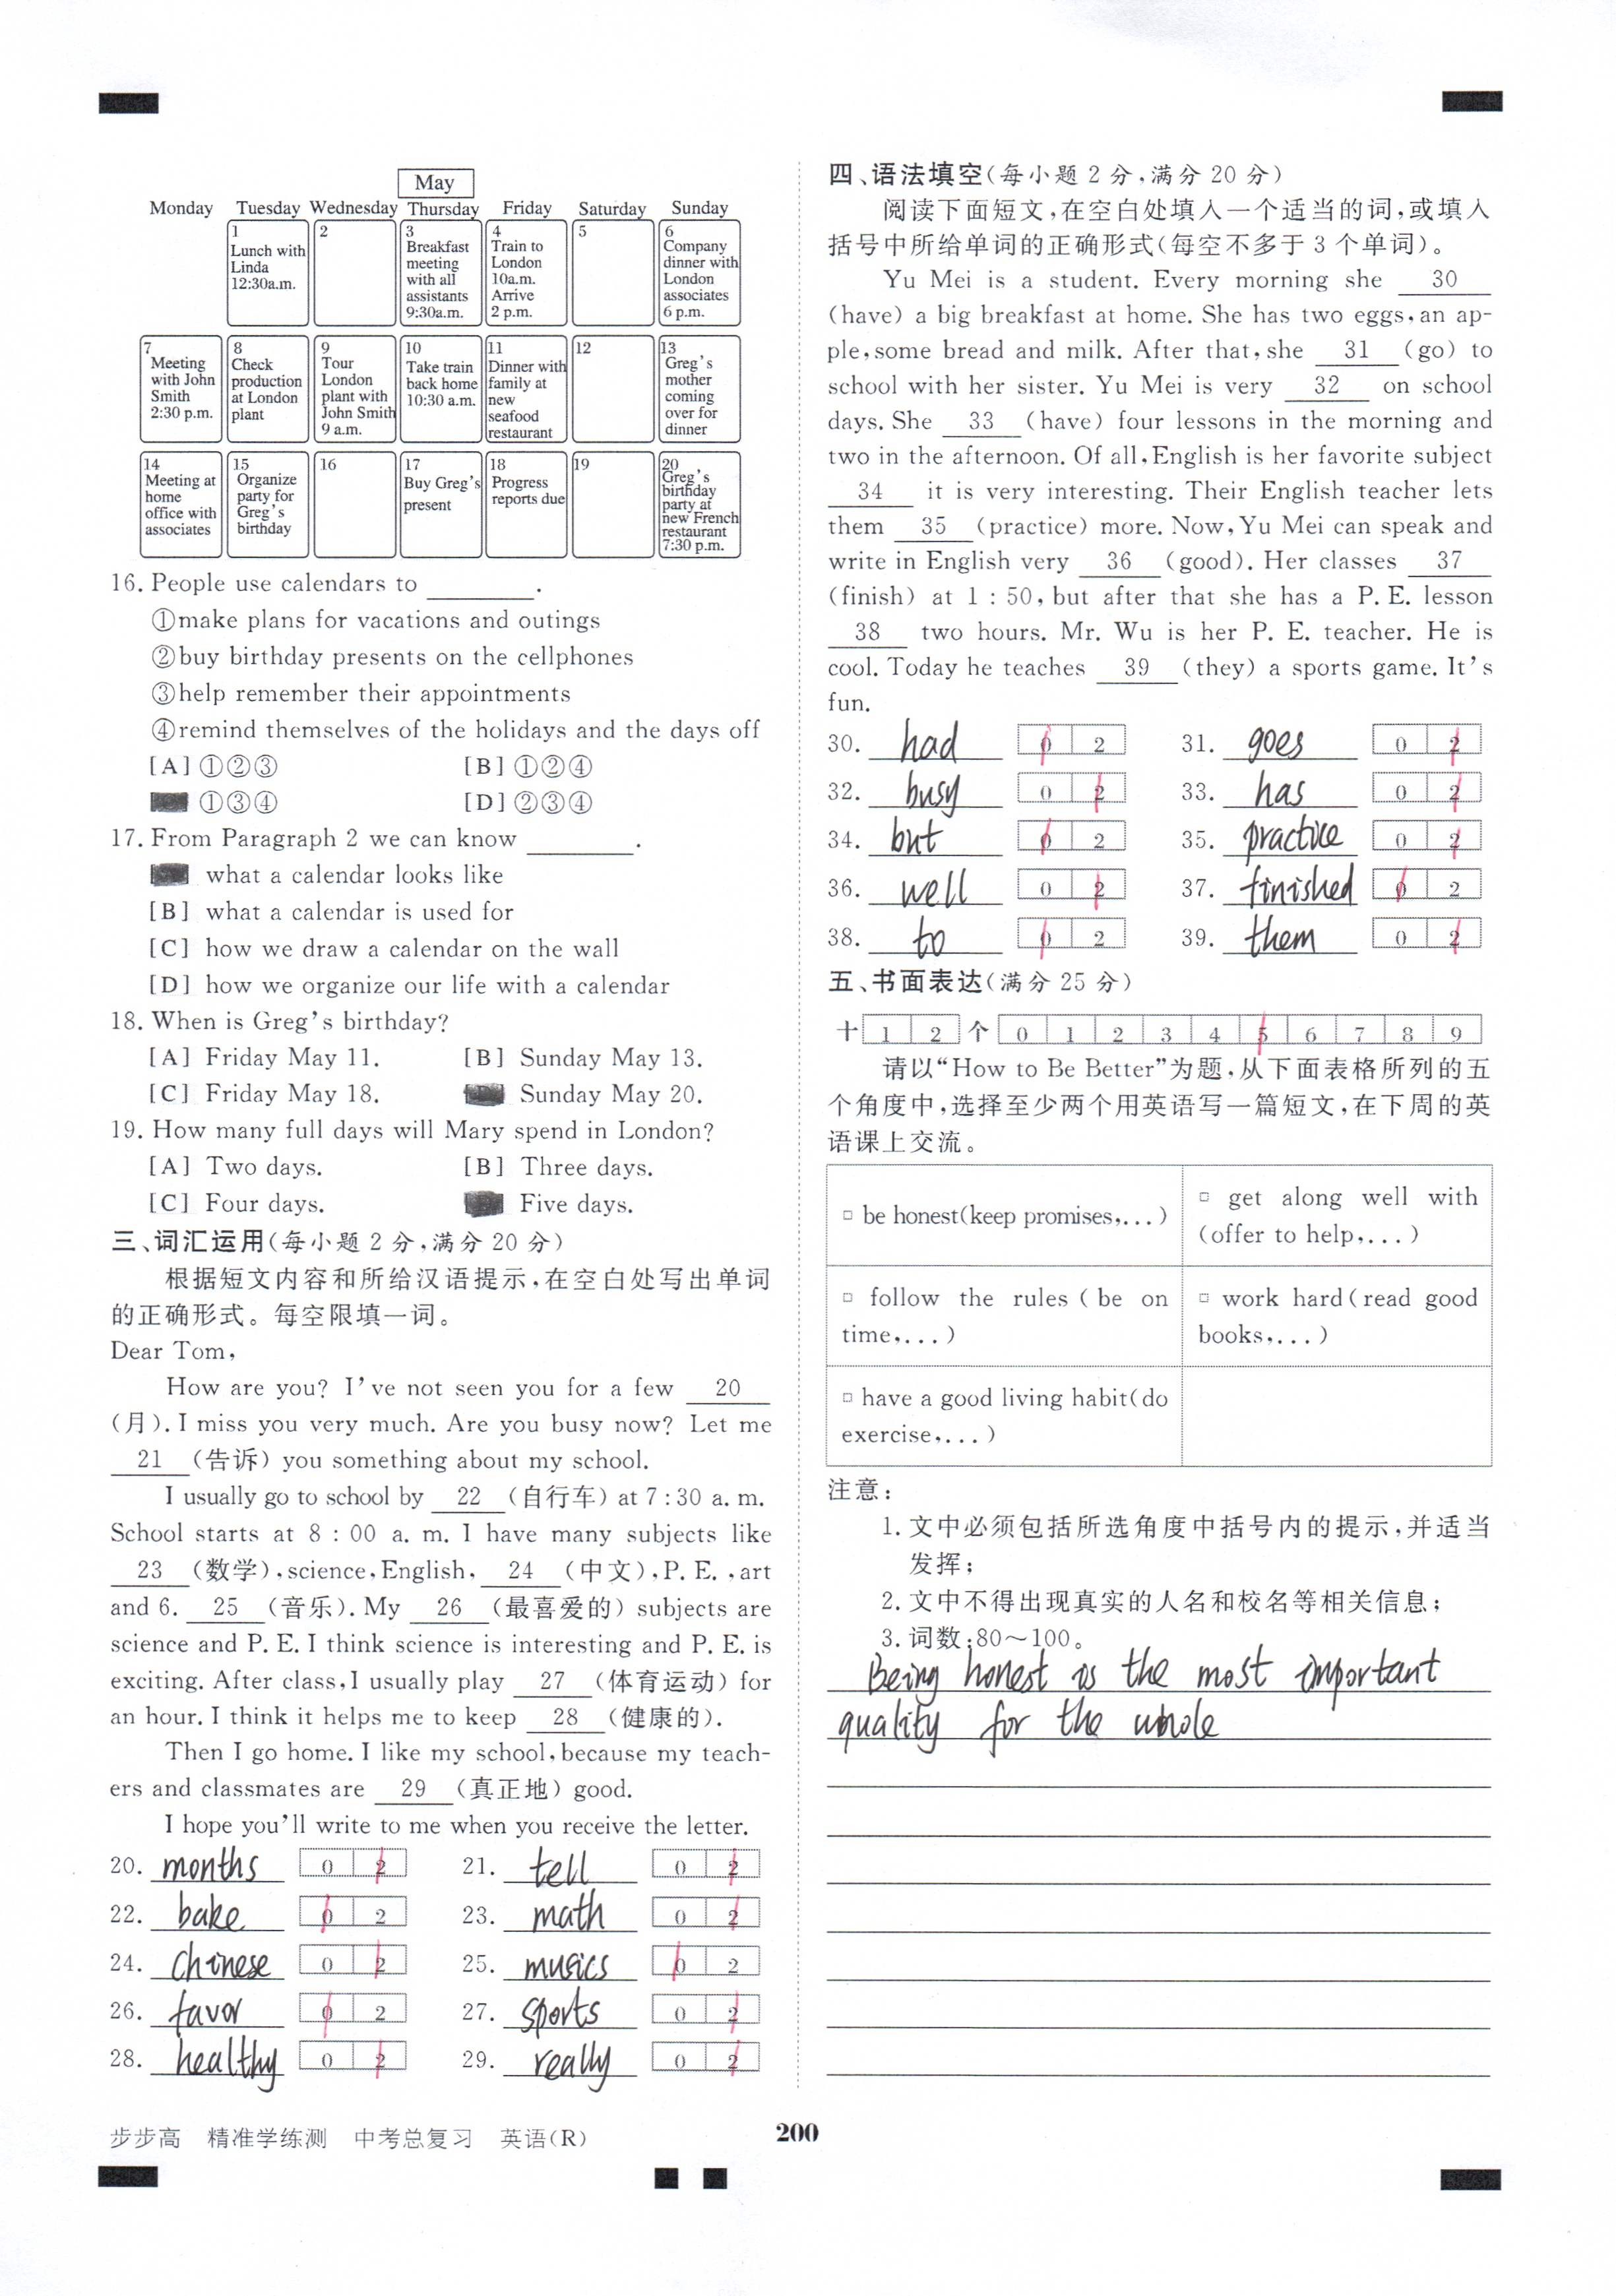 May
Monday Tuesday Wednesday Thursday Friday Saturday Sunday
1
Lunch with
Linda
12:30a.m.
2
3
Breakfast
meeting
with all
assistants
9:30a.m.
4
Train to
London
10a.m.
Arrive
2 p.m.
5
6
Company
dinner with
London
associates
6 p.m.
7
Meeting
with John
Smith
2:30 p.m.
8
Check
production
at London
plant
9
Tour
London
plant with
John Smith
9 a.m.
10
Take train
back home
10:30 a.m.
11
Dinner with
family at
new
seafood
restaurant
12
13
Greg's
mother
coming
over for
dinner
14
Meeting at
home
office with
associates
15
Organize
party for
Greg's
birthday
16
17
Buy Greg's
present
18
Progress
reports due
19
20
Greg's
birthday
party at
new French
restaurant
7:30 p.m.
16. People use calendars to ________.
①make plans for vacations and outings
②buy birthday presents on the cellphones
③help remember their appointments
④remind themselves of the holidays and the days off
[A] ①②③ [B] ①②④
①③④ [D] ②③④
17. From Paragraph 2 we can know ________.
what a calendar looks like
[B] what a calendar is used for
[C] how we draw a calendar on the wall
[D] how we organize our life with a calendar
18. When is Greg's birthday?
[A] Friday May 11. [B] Sunday May 13.
[C] Friday May 18. Sunday May 20.
19. How many full days will Mary spend in London?
[A] Two days. [B] Three days.
[C] Four days. Five days.
三、词汇运用(每小题 2 分,满分 20 分)
根据短文内容和所给汉语提示,在空白处写出单词
的正确形式。每空限填一词。
Dear Tom,
How are you? I've not seen you for a few 20
(月). I miss you very much. Are you busy now? Let me
21 (告诉) you something about my school.
I usually go to school by 22 (自行车) at 7:30 a. m.
School starts at 8 : 00 a. m. I have many subjects like
23 (数学),science,English, 24 (中文),P. E. ,art
and 6. 25 (音乐). My 26 (最喜爱的) subjects are
science and P. E. I think science is interesting and P. E. is
exciting. After class,I usually play 27 (体育运动) for
an hour. I think it helps me to keep 28 (健康的).
Then I go home. I like my school,because my teach-
ers and classmates are 29 (真正地) good.
I hope you'll write to me when you receive the letter.
20. months 0 2 21. tell 0 2
22. bake 0 2 23. math 0 2
24. Chinese 0 2 25. musics 0 2
26. favor 0 2 27. sports 0 2
28. healthy 0 2 29. really 0 2
步步高 精准学练测 中考总复习 英语(R)
200
四、语法填空(每小题 2 分,满分 20 分)
阅读下面短文,在空白处填入一个适当的词,或填入
括号中所给单词的正确形式(每空不多于 3 个单词)。
Yu Mei is a student. Every morning she 30
(have) a big breakfast at home. She has two eggs,an ap-
ple,some bread and milk. After that,she 31 (go) to
school with her sister. Yu Mei is very 32 on school
days. She 33 (have) four lessons in the morning and
two in the afternoon. Of all,English is her favorite subject
34 it is very interesting. Their English teacher lets
them 35 (practice) more. Now,Yu Mei can speak and
write in English very 36 (good). Her classes 37
(finish) at 1 : 50,but after that she has a P. E. lesson
38 two hours. Mr. Wu is her P. E. teacher. He is
cool. Today he teaches 39 (they) a sports game. It's
fun.
30. had 0 2 31. goes 0 2
32. busy 0 2 33. has 0 2
34. but 0 2 35. practice 0 2
36. well 0 2 37. finished 0 2
38. to 0 2 39. them 0 2
五、书面表达(满分 25 分)
十 1 2 个 0 1 2 3 4 5 6 7 8 9
请以“How to Be Better”为题,从下面表格所列的五
个角度中,选择至少两个用英语写一篇短文,在下周的英
语课上交流。
□ be honest(keep promises,...)
□ get along well with
(offer to help,...)
□ follow the rules ( be on
time,...)
□ work hard(read good
books,...)
□ have a good living habit(do
exercise,...)
注意:
1. 文中必须包括所选角度中括号内的提示,并适当
发挥;
2. 文中不得出现真实的人名和校名等相关信息;
3. 词数:80～100。
Being honest is the most important
quality for the whole